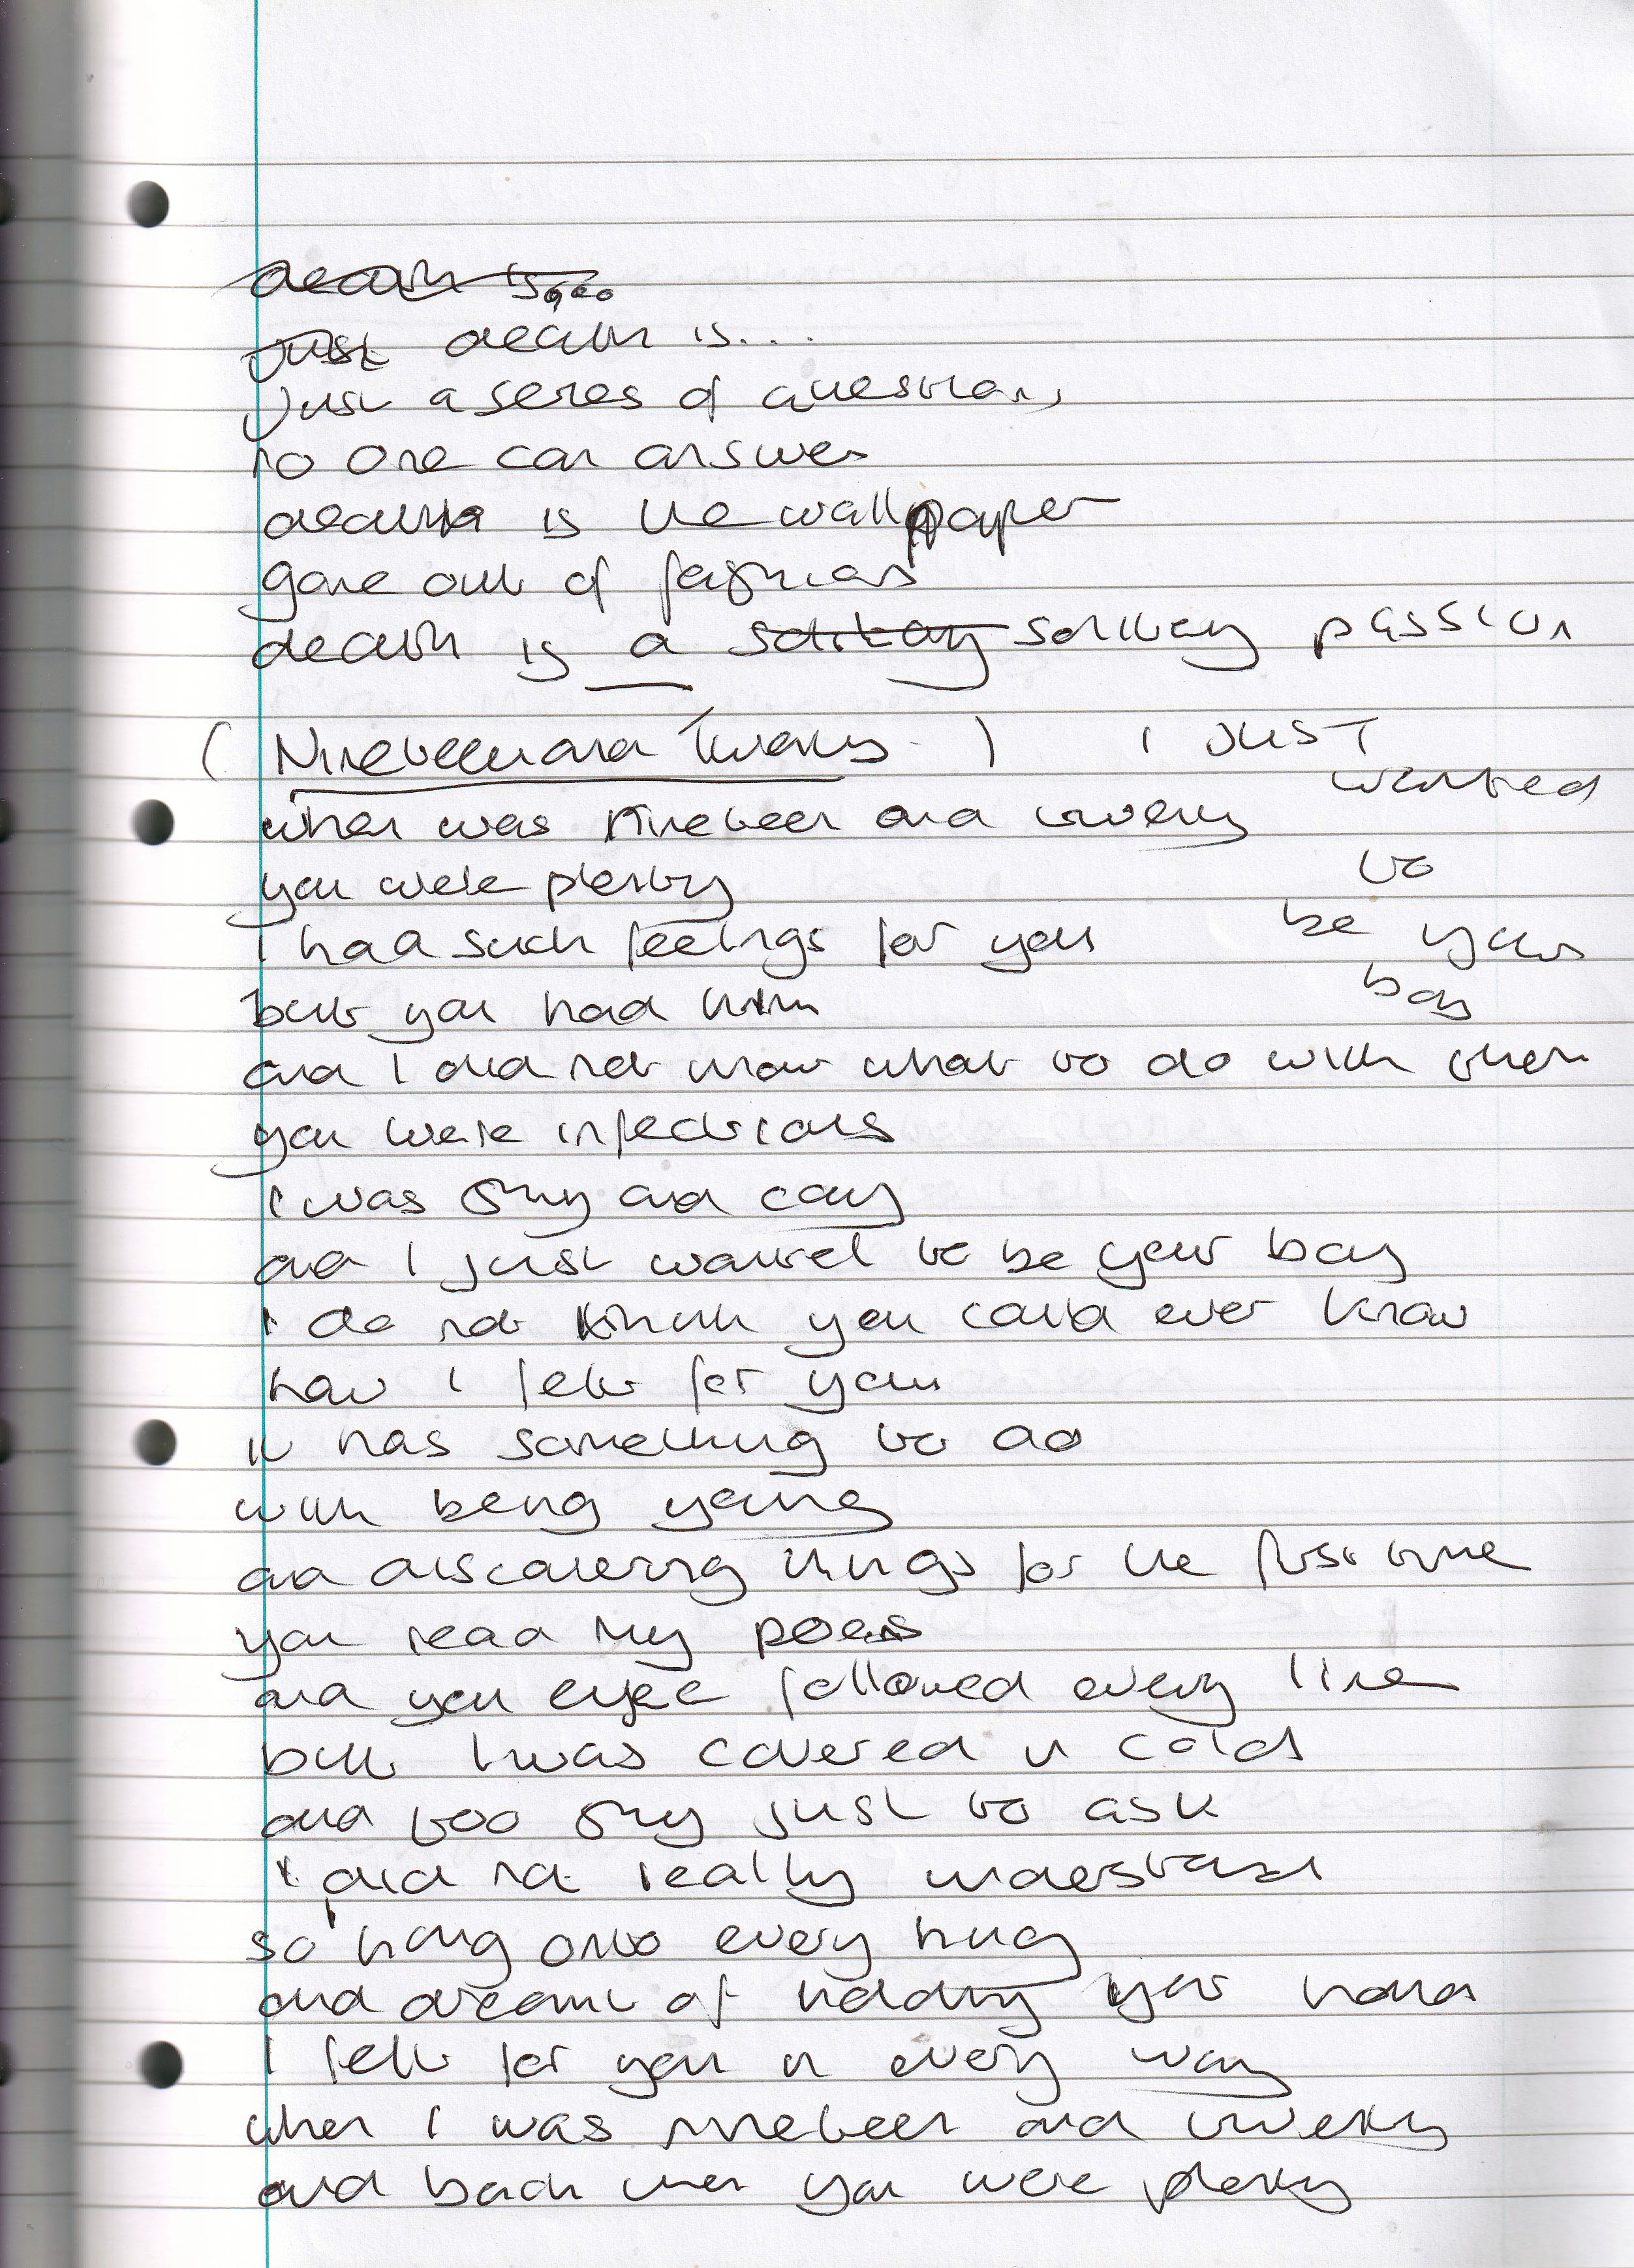 death is...
Just death is...
Just a series of questions
no one can answer
death is the wallpaper
gone out of fashion
death is a solitary solitary passion
(Nineteen and Twenty)
I JUST
wanted
to
be your
boy
when was nineteen and twenty
you were plenty
I had such feelings for you
but you had him
and I did not know what to do with them
you were infectious
I was shy and coy
and I just wanted to be your boy
I do not think you could ever know
how I felt for you
it has something to do
with being young
and discovering things for the first time
you read my poems
and you eyes followed every line
but I was covered in cold
and too shy just to ask
I did not really understand
so I hang onto every hug
and dreamt of holding your hand
I fell for you in every way
when I was nineteen and twenty
and back when you were plenty